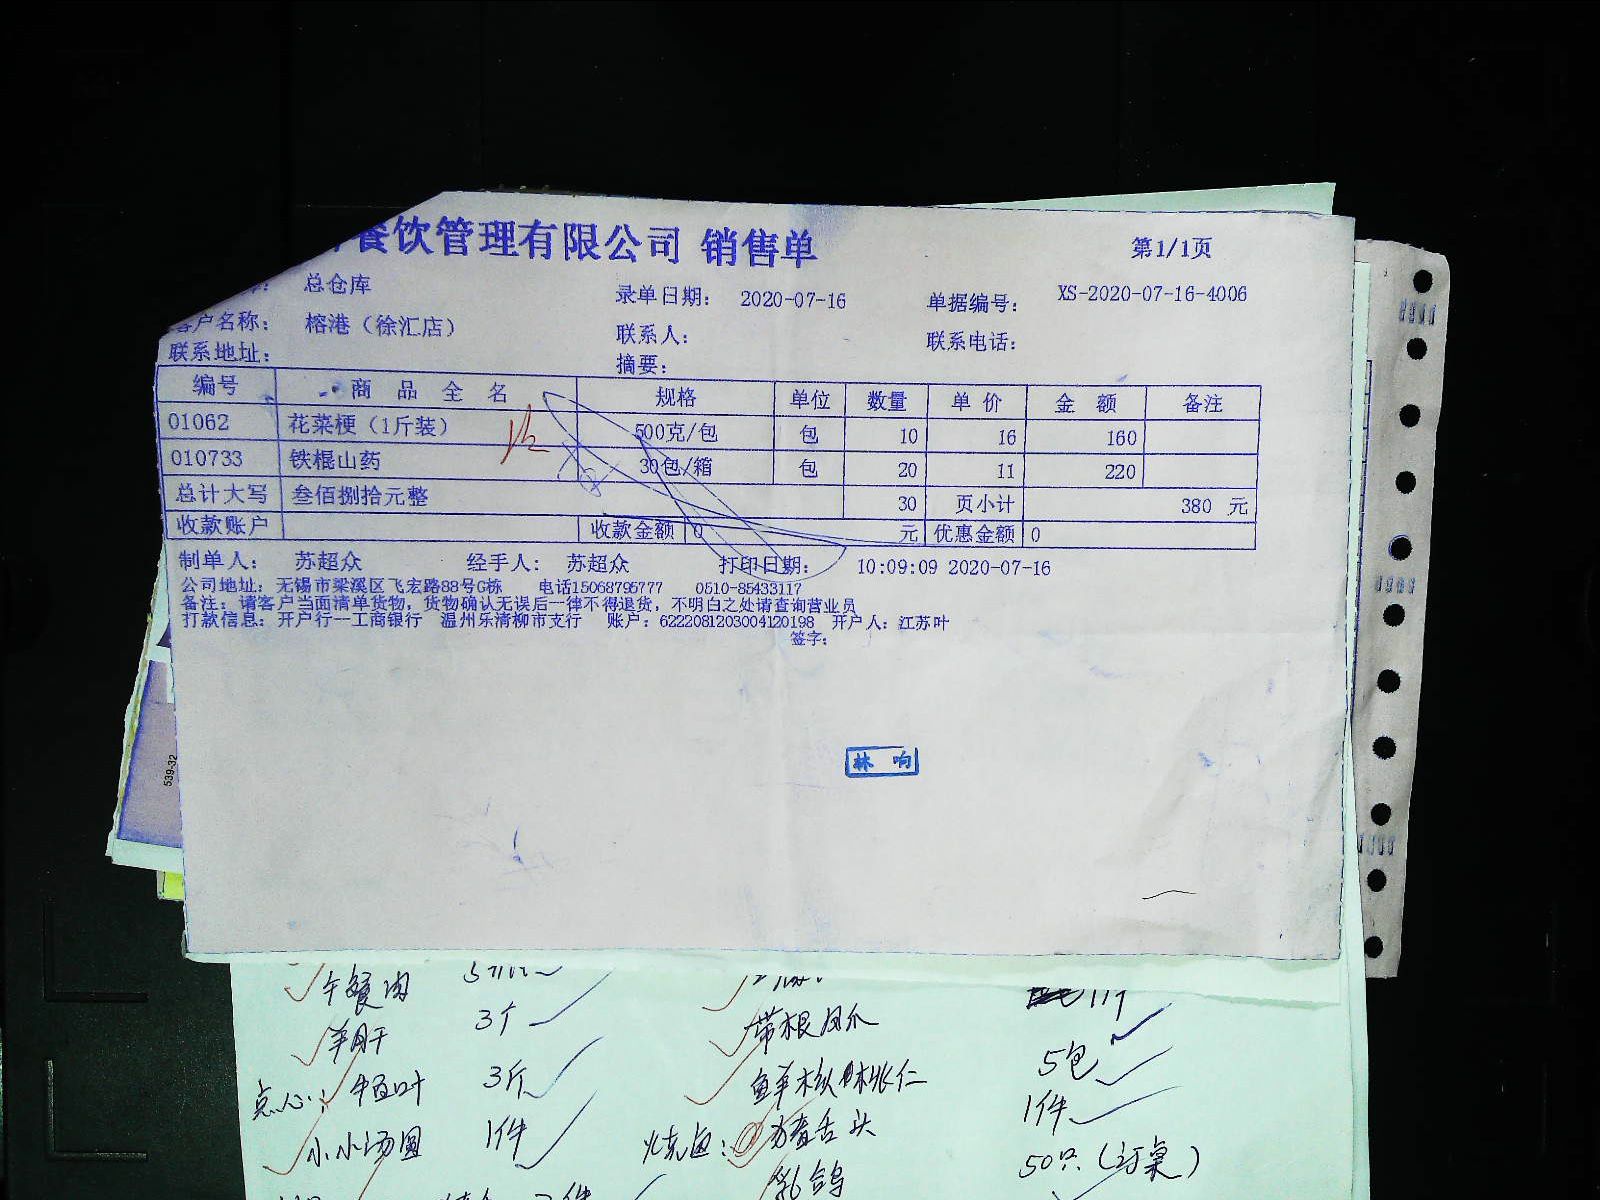 餐饮管理有限公司 销售单 第1/1页
总仓库 录单日期： 2020-07-16 单据编号： XS-2020-07-16-4006
客户名称： 榕港（徐汇店） 联系人： 联系电话：
联系地址： 摘要：
编号 商品全名 规格 单位 数量 单价 金额 备注
01062 花菜梗（1斤装） 500克/包 包 10 16 160
010733 铁棍山药 30包/箱 包 20 11 220
总计大写 叁佰捌拾元整 30 页小计 380 元
收款账户 收款金额 0 元 优惠金额 0
制单人： 苏超众 经手人： 苏超众 打印日期： 10:09:09 2020-07-16
公司地址：无锡市梁溪区飞宏路88号G栋 电话15068795777 0510-85433117
备注：请客户当面清单货物，货物确认无误后一律不得退货，不明白之处请查询营业员
打款信息：开户行一工商银行 温州乐清柳市支行 账户：6222081203004120198 开户人：江苏叶
签字：
539-32
林响
午餐肉
羊肝 3个 带根凤爪
点心： 3斤 5包
小小汤圆 1件 1件
烧卤： 猪舌头
乳鸽 50只（订桌）